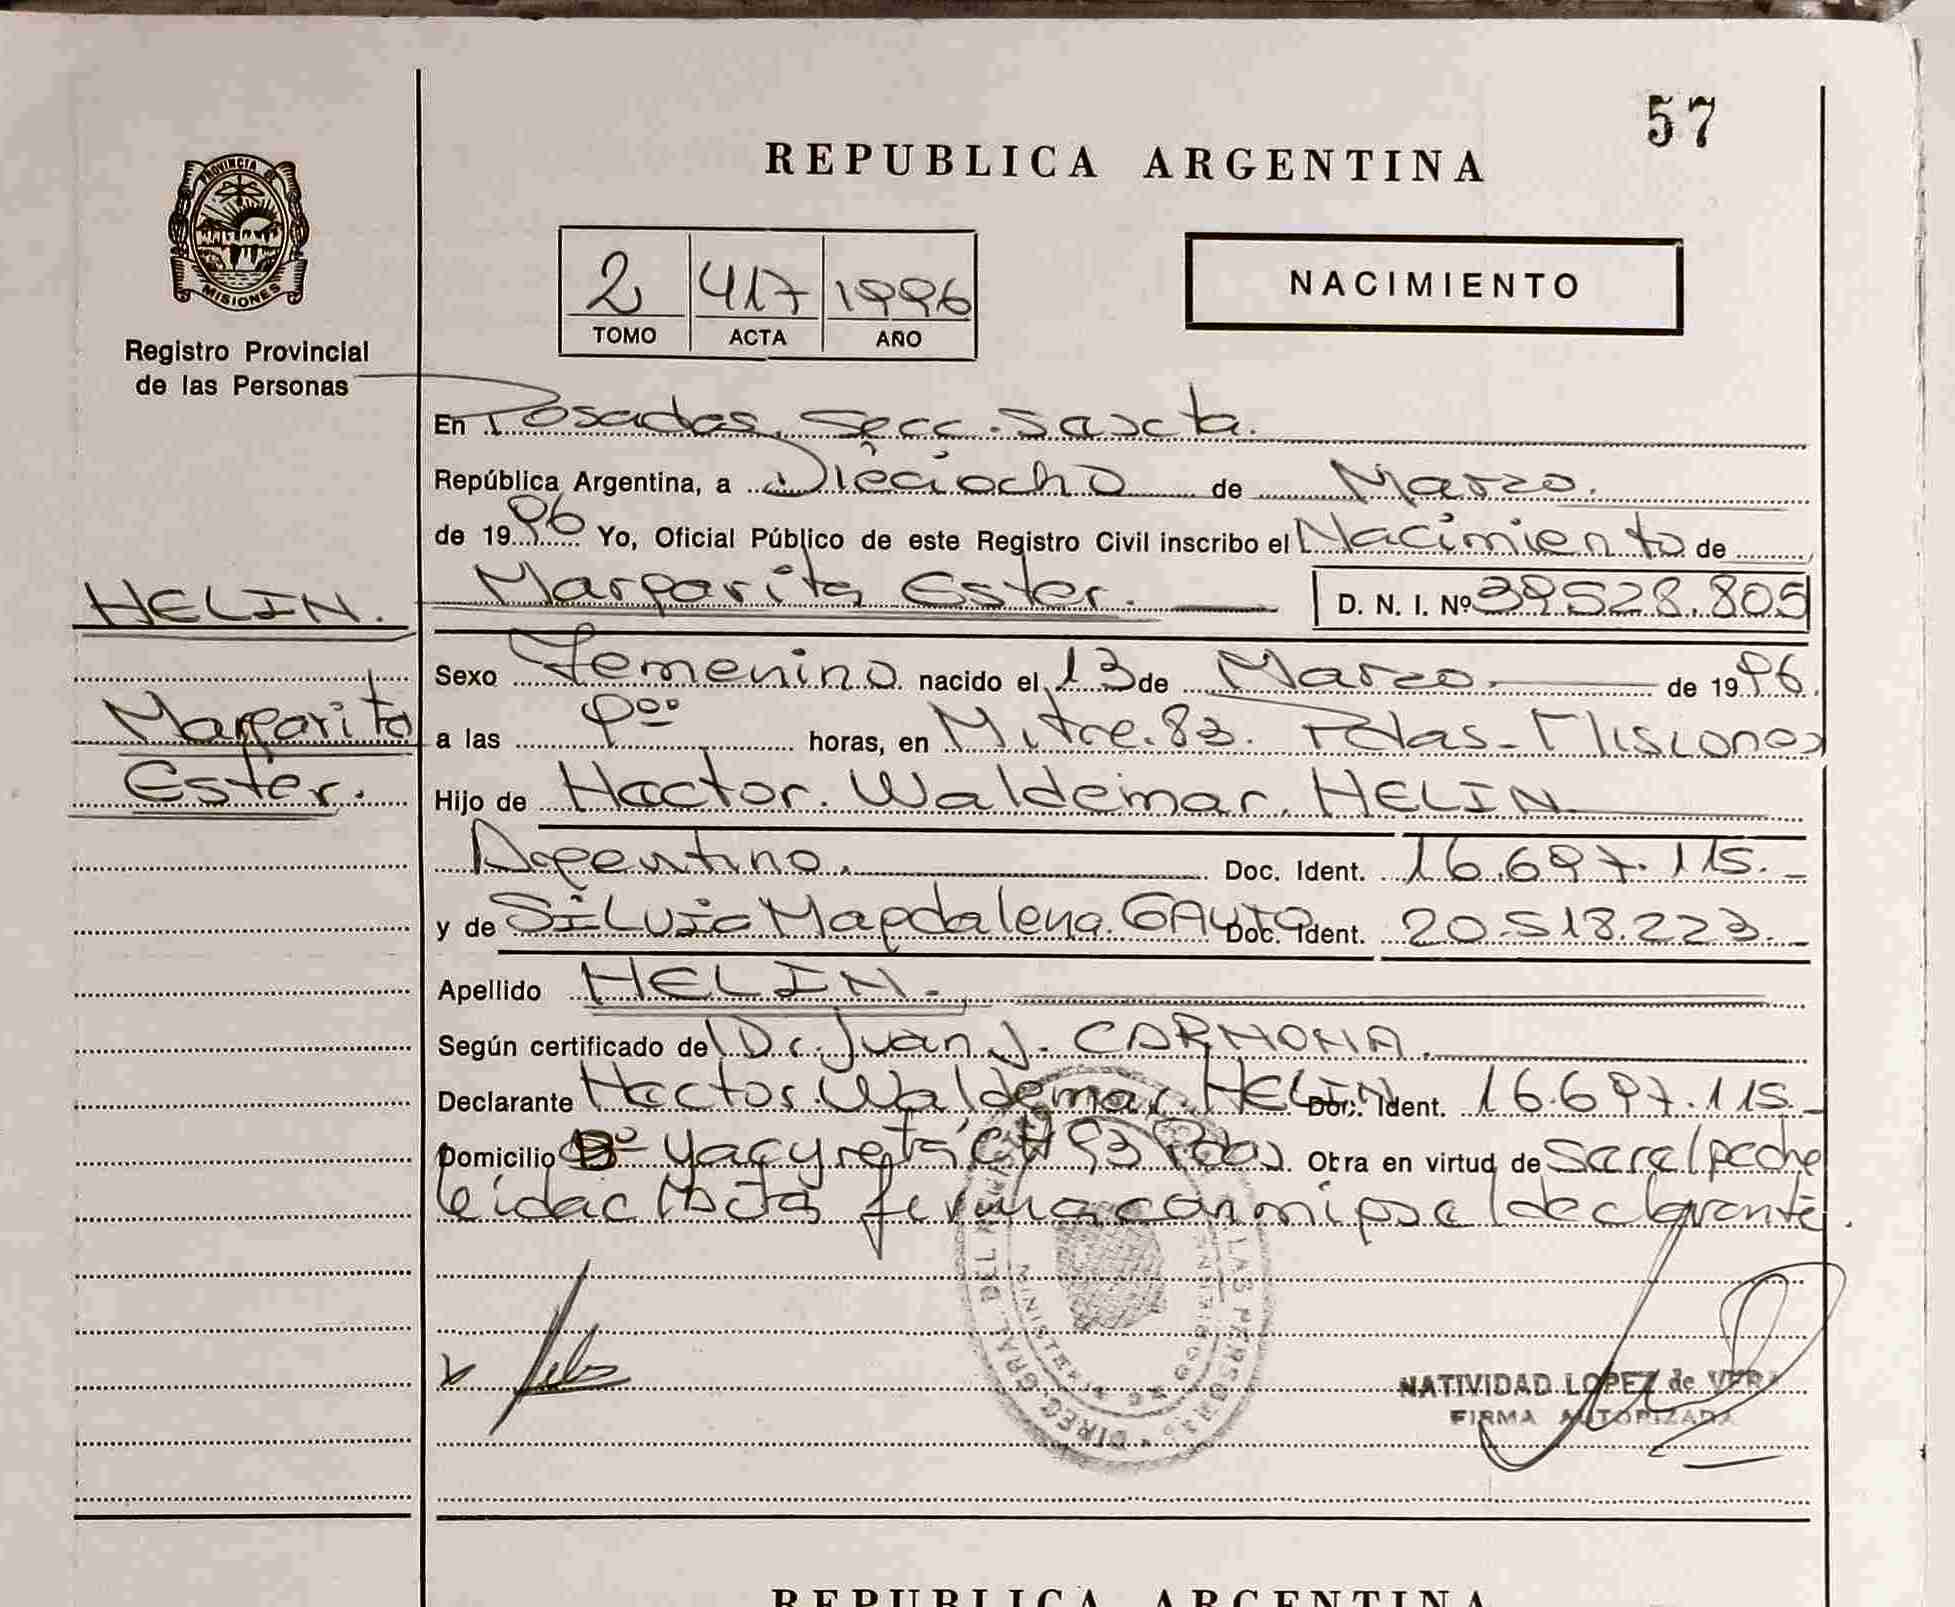 57
REPUBLICA ARGENTINA
PROVINCIA DE
MISIONES
Registro Provincial
de las Personas
2 417 1996
TOMO ACTA AÑO
NACIMIENTO
En Posadas, Secc. Sexta.
República Argentina, a Dieciocho de Marzo.
de 1996 Yo, Oficial Público de este Registro Civil inscribo el Nacimiento de
HELIN.
Margarita Ester. D. N. I. Nº 39528.805
Margarita
Ester.
Sexo Femenino nacido el 13 de Marzo de 1996.
a las 9ºº horas, en Mitre. 83. Pdas- Misiones
Hijo de Hector. Waldemar. HELIN
Argentino. Doc. Ident. 16.697.115.-
y de SILVIA Magdalena. Doc. Ident. 20.518.223.-
Apellido HELIN.
Según certificado de Dr. Juan J. CARMONA.
Declarante Hector. Waldemar. HELIN Doc. Ident. 16.697.115.-
Domicilio Bº Yacyretá 93 Pdas. Obra en virtud de ser el padre
leida el Acta firma conmigo el declarante.
DIREC. GRAL. DEL LAS PERSONAS
NATIVIDAD LOPEZ de VERA
FIRMA AUTORIZADA
REPUBLICA ARGENTINA